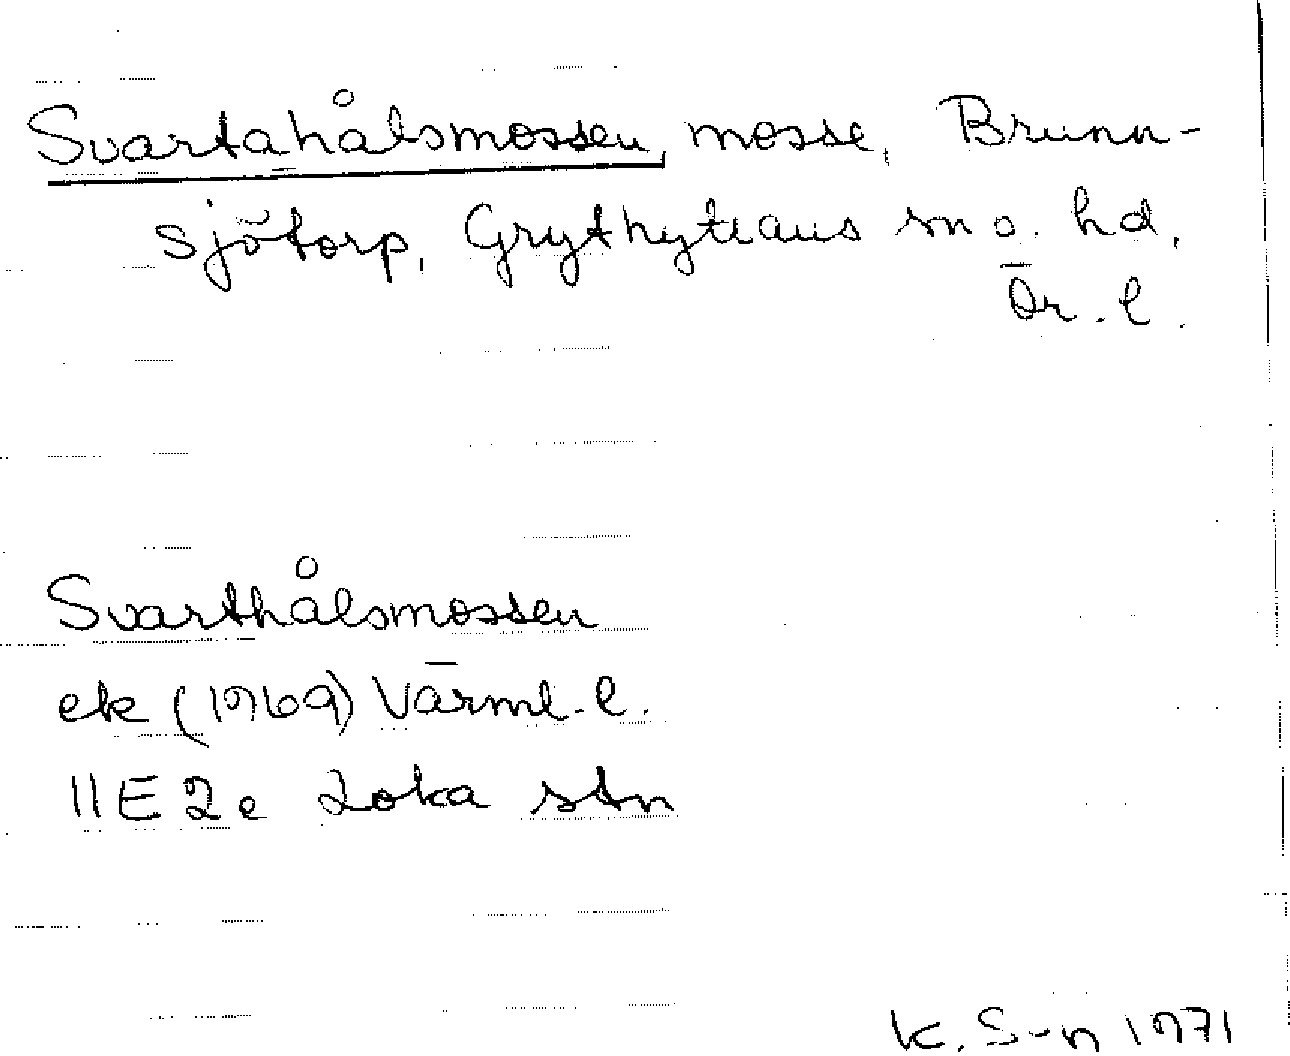 Svartahålsmossen, mosse, Brunn-
sjötorp, Grythyttans sn o. hd,
Ör. l.
Svarthålsmossen
ek (1969) Värml. l.
11E 2e Loka stn
K. S-n 1971